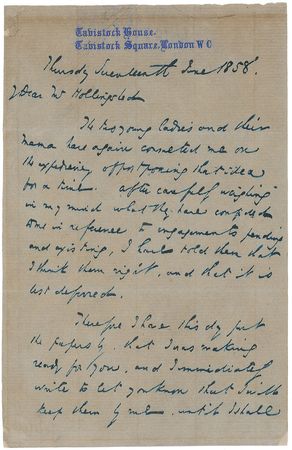 Tavistock House.
Tavistock Square. London W C
Thursday Seventeenth June 1858.
My Dear Mr
The two young ladies and their
mama have again consulted me on
the expediency of postponing that idea
for a time. After carefully weighing
in my mind what they have confided
to me in reference to engagements pending
and existing, I have told them that
I think them right, and that it is
best deferred.
Therefore I have this day put
the papers by, that I was making
ready for you, and I immediately
write to let you know that I will
keep them by me until I shall